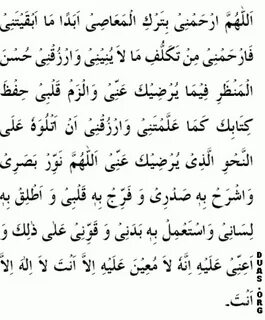 اَللّٰهُمَّ ارْحَمْنِيْ بِتَرْكِ الْمَعَاصِيْ اَبَدًا مَا اَبْقَيْتَنِيْ
فَارْحَمْنِيْ مِنْ تَكَلُّفِ مَا لَا يُنِيْنِيْ وَارْزُقْنِيْ حُسْنَ
الْمَنْظَرِ فِيْمَا يُرْضِيْكَ عَنِّيْ وَ الْزِمْ قَلْبِيْ حِفْظَ
كِتَابِكَ كَمَا عَلَّمْتَنِيْ وَارْزُقْنِيْ اَنْ اَتْلُوَهٗ عَلَى
النَّحْوِ الَّذِيْ يُرْضِيْكَ عَنِّيْ اَللّٰهُمَّ نَوِّرْ بَصَرِيْ
وَاشْرَحْ بِهٖ صَدْرِيْ وَ فَرِّجْ بِهٖ قَلْبِيْ وَ اَطْلِقْ بِهٖ
لِسَانِيْ وَاسْتَعْمِلْ بِهٖ بَدَنِيْ وَ قَوِّنِيْ عَلٰى ذٰلِكَ وَ
اَعِنِّيْ عَلَيْهِ اِنَّهٗ لَا مُعِيْنَ عَلَيْهِ اِلَّا اَنْتَ لَا اِلٰهَ اِلَّا
اَنْتَ۔
DUAS.ORG